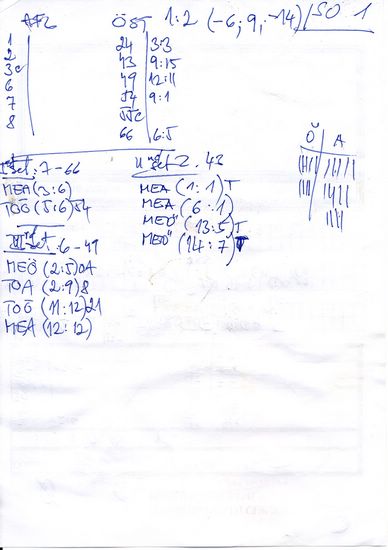 AFL ÖST 1:2 (-6; 9; -14) / SO 1
1 24 3:3
2 43 9:15
3c 49 12:11
6 54 9:1
7 55c
8 66 6:5
Ö A
I Set: 7-66
MEA (3:6)
TOÖ (5:6) 54
II Set 2-43
MEA (1:1) T
MEA (6:1)
MEÖ (13:5) T
MEÖ (14:7)
III Set: 6-49
MEÖ (2:5) OA
TOA (2:9) 8
TOÖ (11:12) 21
MEA (12:12)